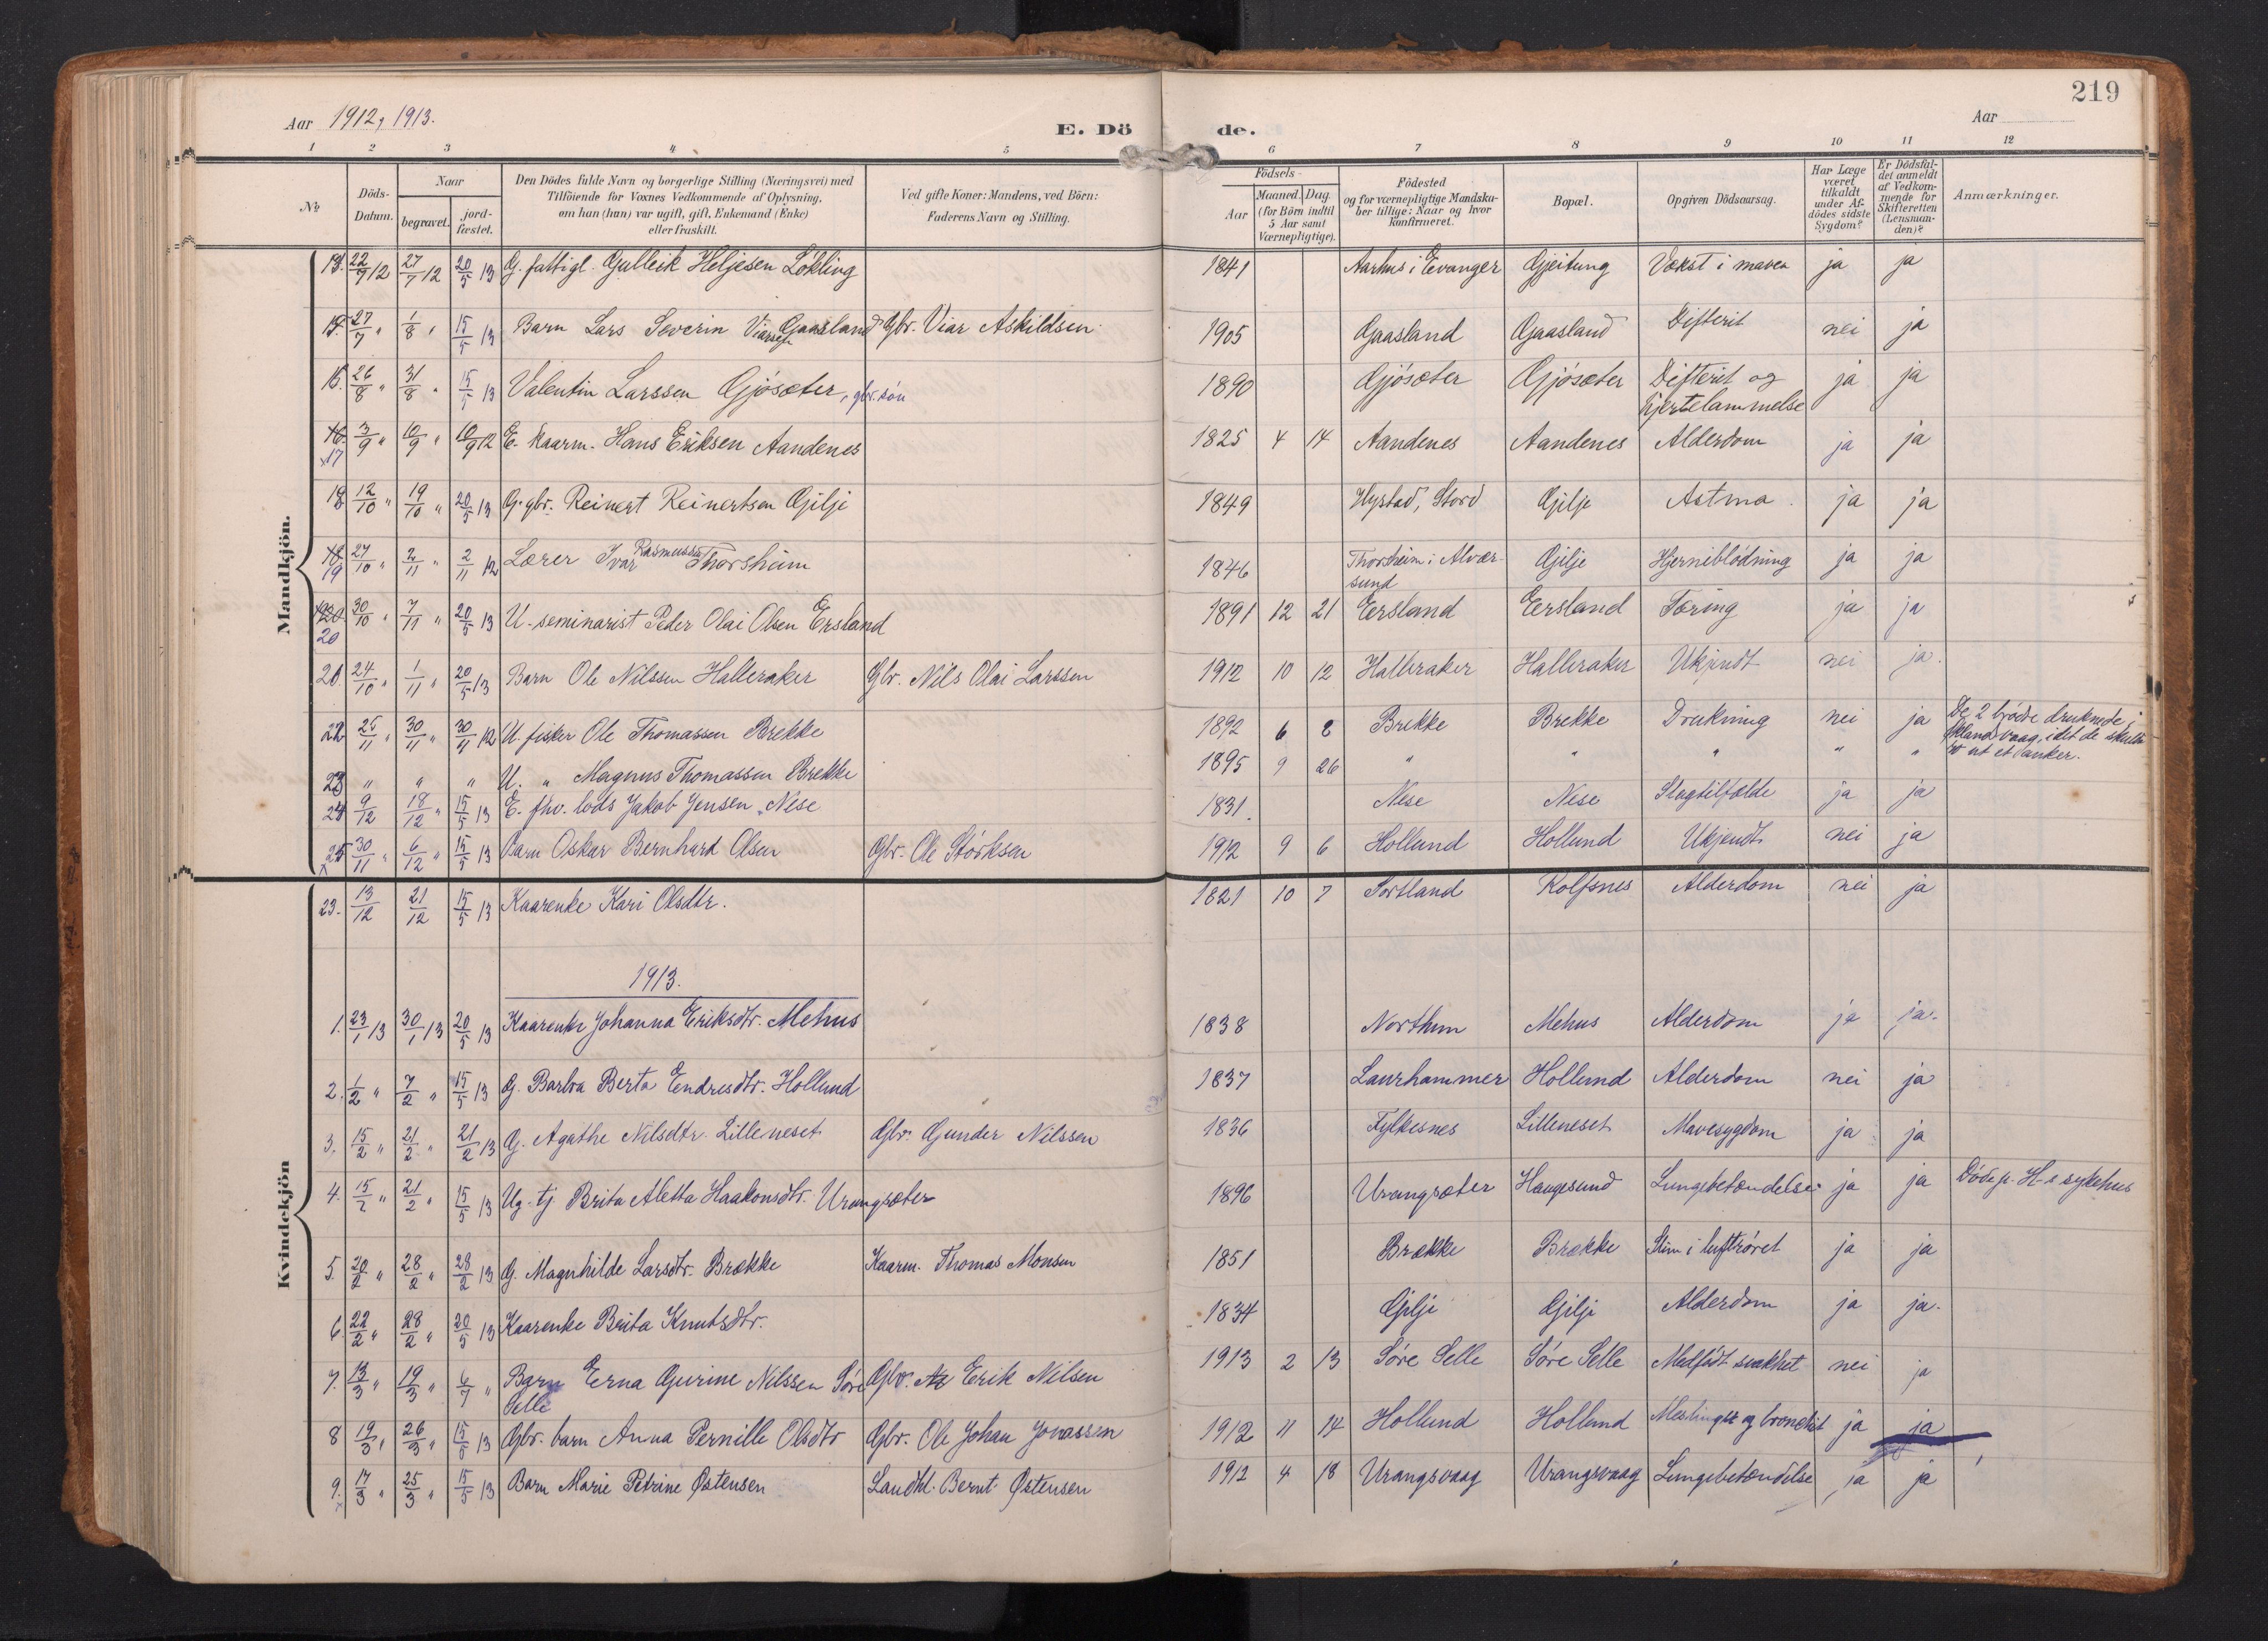 219
Aar 1912, 1913.
E. Dö
de.
Aar
1 2 3 4 5 6 7 8 9 10 11 12
No
Döds-Datum.
Naar
begravet.
jord-fæstet.
Den Dödes fulde Navn og borgerlige Stilling (Næringsvei) med
Tilföiende for Voxnes Vedkommende af Oplysning,
om han (hun) var ugift, gift, Enkemand (Enke)
eller fraskilt.
Ved gifte Koner: Mandens, ved Börn:
Faderens Navn og Stilling.
Födsels-
Aar
Maaned.
Dag
(for Börn indtil
5 Aar samt
Værnepligtige).
Födested
og for værnepligtige Mandska-
ber tillige: Naar og hvor
konfirmeret.
Bopæl.
Opgiven Dödsaarsag.
Har Læge
været
tilkaldt
under Af-
dödes sidste
Sygdom?
Er Dödsfal-
det anmeldt
af Vedkom-
mende for
Skifteretten
(Lensman-
den)?
Anmærkninger.
Mandkjön.
22/7 12 27/7 12 20/5 13 G. fattigl. Galleik Heljesen Lökling 1841 Aarhus i Evanger Gjeitung Vækst i maven ja ja
27/7 " 1/8 " 15/5 13 Barn Lars Severin Viarsen Gaasland Gbr. Viar Askildsen 1905 Gaasland Gaasland Difterit nei ja
26/8 " 31/8 " 15/5 13 Valentin Larssen Gjösæter, gbr. sön 1890 Gjösæter Gjösæter Difterit og ja ja
hjertelammelse
17 3/9 " 10/9 " 10/9 12 E. kaarm. Hans Eriksen Aandenes 1825 4 14 Aandenes Aandenes Alderdom ja ja
18 12/10 " 19/10 " 20/5 13 G. gbr. Reinert Reinertsen Gilje 1849 Hystad, Stord Gilje Astma. ja ja
19 27/10 " 2/11 " 2/11 12 Lærer Ivar Rasmussen Thorsheim 1846 Thorsheim i Alvær- Gilje Hjerneblödning ja ja
sund
20 30/10 " 7/11 " 20/5 13 U. seminarist Peder Olai Olsen Ersland 1891 12 21 Eersland Eersland Tæring ja ja
24/10 " 1/11 " 20/5 13 Barn Ole Nilssen Halleraker Gbr. Nils Olai Larssen 1912 10 12 Halleraker Halleraker Ukjendt nei ja.
22 25/11 " 30/11 " 30/11 12 U. fisker Ole Thomassen Brekke 1892 6 8 Brekke Brekke Drukning nei ja De 2 brödre druknede i
23 " " " U. " Magnus Thomassen Brekke 1895 9 26 " " " " " idet de skulde
ut et anker.
24 9/12 18/12 " 15/5 13 E. fhv. lods Jakob Jensen Nese 1831. Nese Nese Slagtilfælde ja ja
25 30/11 " 6/12 " 15/5 13 Barn Oskar Bernhard Olsen Gbr. Ole Störksen 1912 9 6 Hollund Hollund Ukjendt nei ja
Kvindekjön
23. 13/12 21/12 15/5 13 Kaarenke Kari Olsdtr. 1821 10 7 Sortland Rolfsnes Alderdom nei ja
1913.
1. 23/1 13 30/1 13 20/5 13 Kaarenke Johanna Eriksdtr. Mehus 1838 Northun Mehus Alderdom ja ja.
2. 1/2 " 7/2 " 15/5 13 G. Barbra Berta Eendresdtr. Hollund 1837 Laurhammer Hollund Alderdom nei ja
3. 15/2 " 21/2 " 21/2 13 G. Agathe Nilsdtr. Lilleneset Gbr. Gunder Nilssen 1836 Fylkesnes Lilleneset Mavesygdom ja ja
4. 15/2 " 21/2 " 15/5 13 Ug. tj. Brita Aletta Haakonsdtr. Urangsæter 1896 Urangsæter Haugesund Lungebetændelse ja ja Döde p. H-s sykehus
5. 20/2 " 28/2 " 28/2 13 G. Magnhilde Larsdtr. Brække Kaarm. Thomas Monsen 1851 Brække Brække Slim i luftröret ja ja
6. 22/2 " 28/2 " 20/5 13 Kaarenke Brita Knutsdtr. 1834 Gilje Gilje Alderdom ja ja.
7. 13/3 " 19/3 " 6/7 " Barn Erna Gurine Nilssen Söre Gbr. Erik Nilsen 1913 2 13 Söre Selle Söre Selle Medfödt svakhet nei ja
Selle
8 19/3 " 26/3 " 15/5 13 Gbr. barn Anna Pernille Olsdtr Gbr. Ole Johan Jonassen 1912 11 14 Hollund Hollund Meslinger og bronchit ja ja
9. 17/3 " 25/3 " 15/5 13 Barn Marie Petrine Østensen Landhl. Bernt Østensen 1912 4 18 Urangsvaag Urangsvaag Lungebetændelse ja ja